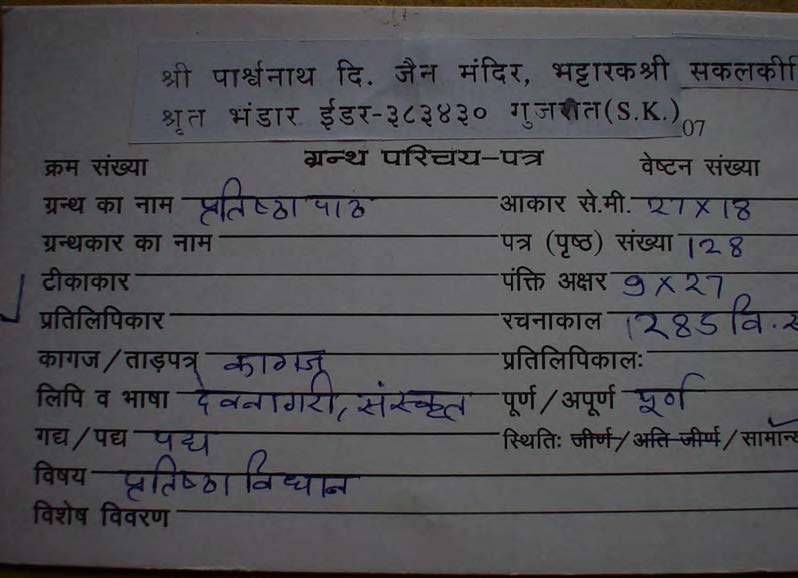 श्री पार्श्वनाथ दि. जैन मंदिर, भट्टारकश्री
श्रृत भंडार ईडर-३८३४३० गुजरात(S.K.) 07
क्रम संख्या ग्रन्थ परिचय-पत्र वेष्टन संख्या
ग्रन्थ का नाम प्रतिष्ठा पाठ आकार से.मी. 27 x 18
ग्रन्थकार का नाम पत्र (पृष्ठ) संख्या 128
टीकाकार पंक्ति अक्षर 9 x 27
प्रतिलिपिकार रचनाकाल 1285 वि.
कागज/ताड़पत्र कागज प्रतिलिपिकालः
लिपि व भाषा देवनागरी, संस्कृत पूर्ण/अपूर्ण पूर्ण
गद्य/पद्य पद्य स्थितिः जीर्ण/अति जीर्ण/
विषय प्रतिष्ठा विधान
विशेष विवरण